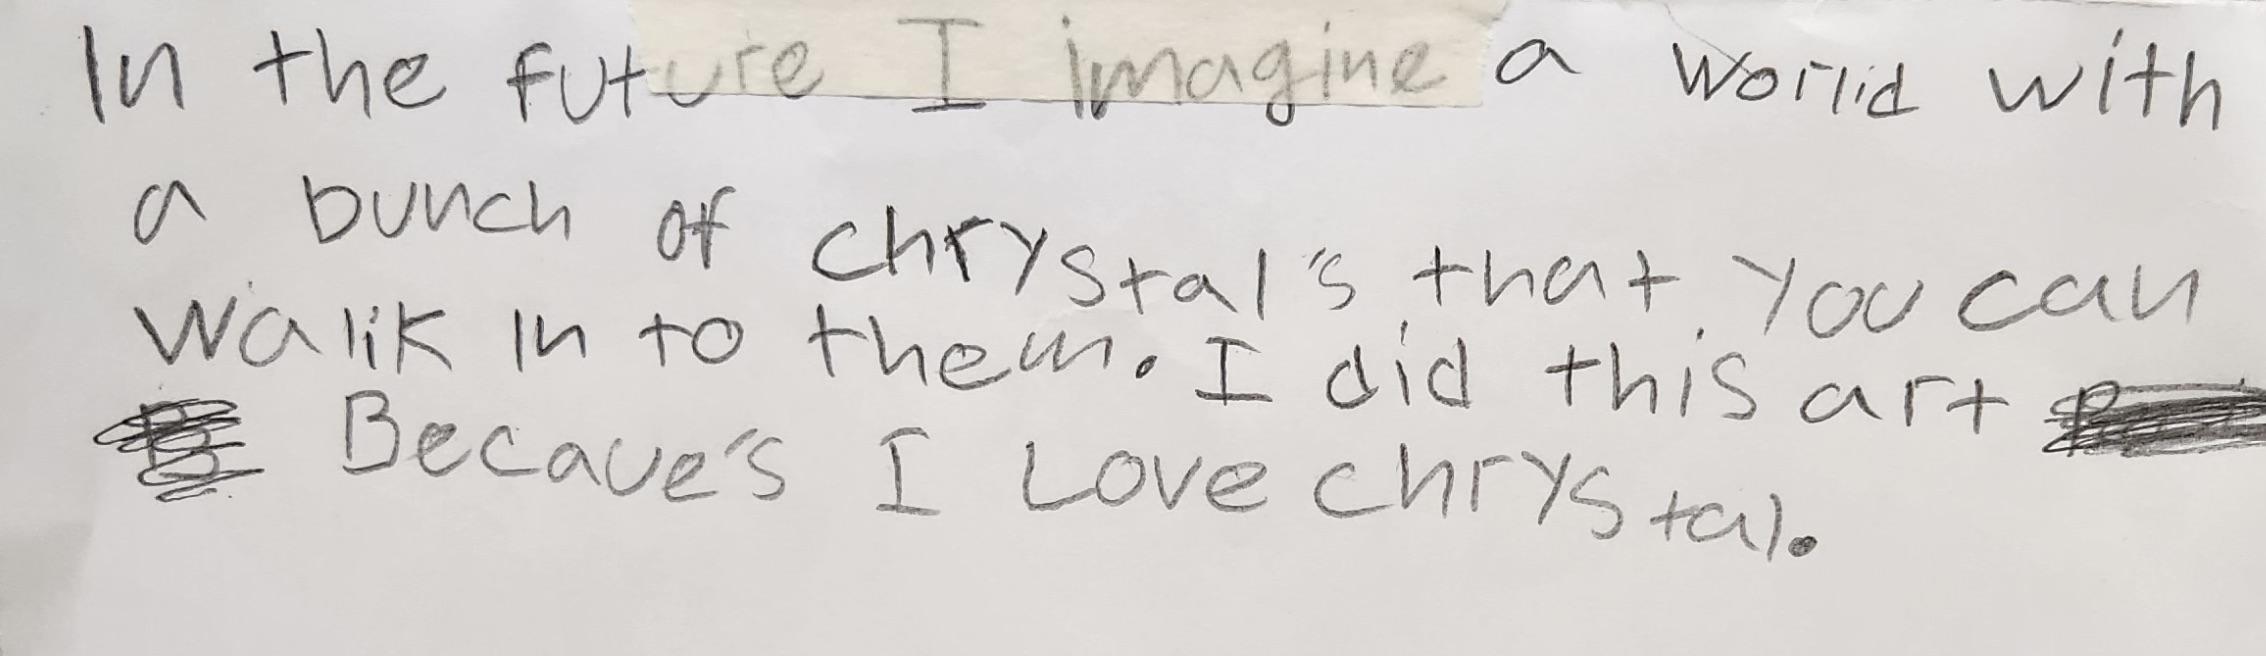 In the future I imagine a worlid with
a bunch of chrystal's that you can
walik in to them. I did this art
Becaue's I Love chrystal.